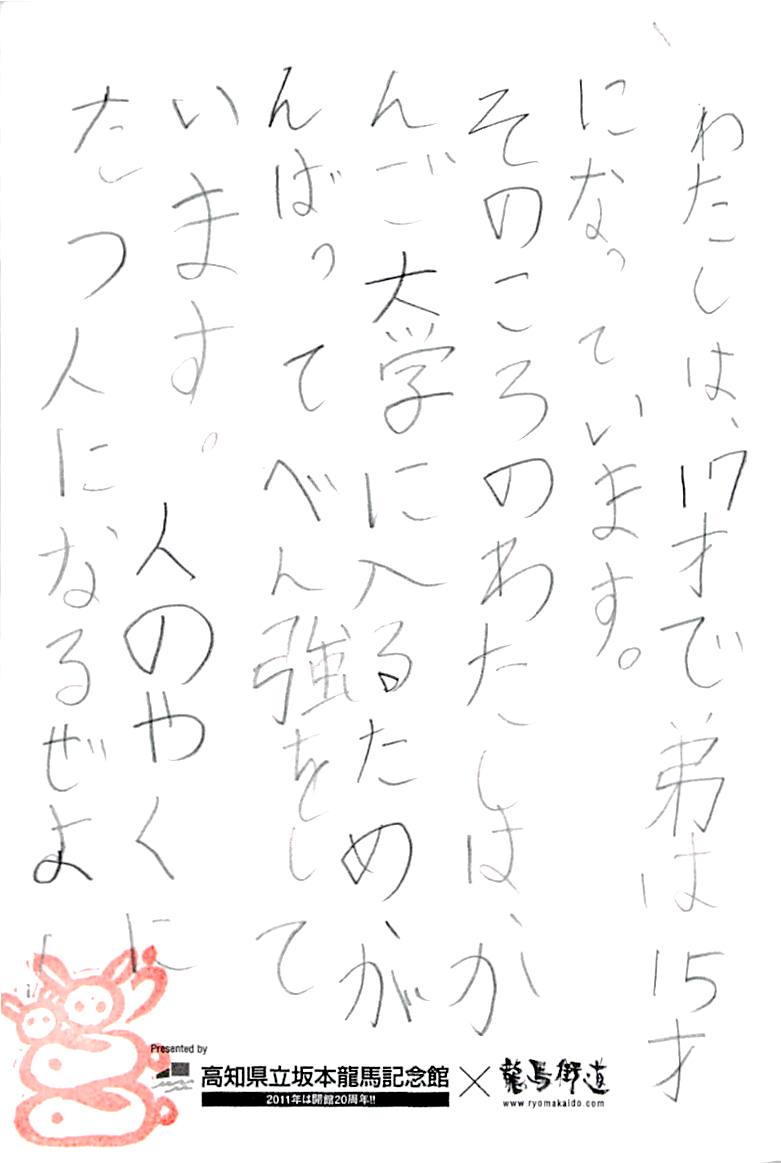 わたしは、17才で弟は15才
になっています。
そのころのわたしは、か
んご大学に入るためが
んばってべん強をして
います。人のやくに
たつ人になるぜよ
Presented by
高知県立坂本龍馬記念館
2011年は開館20周年!!
×
龍馬街道
www.ryomakaido.com